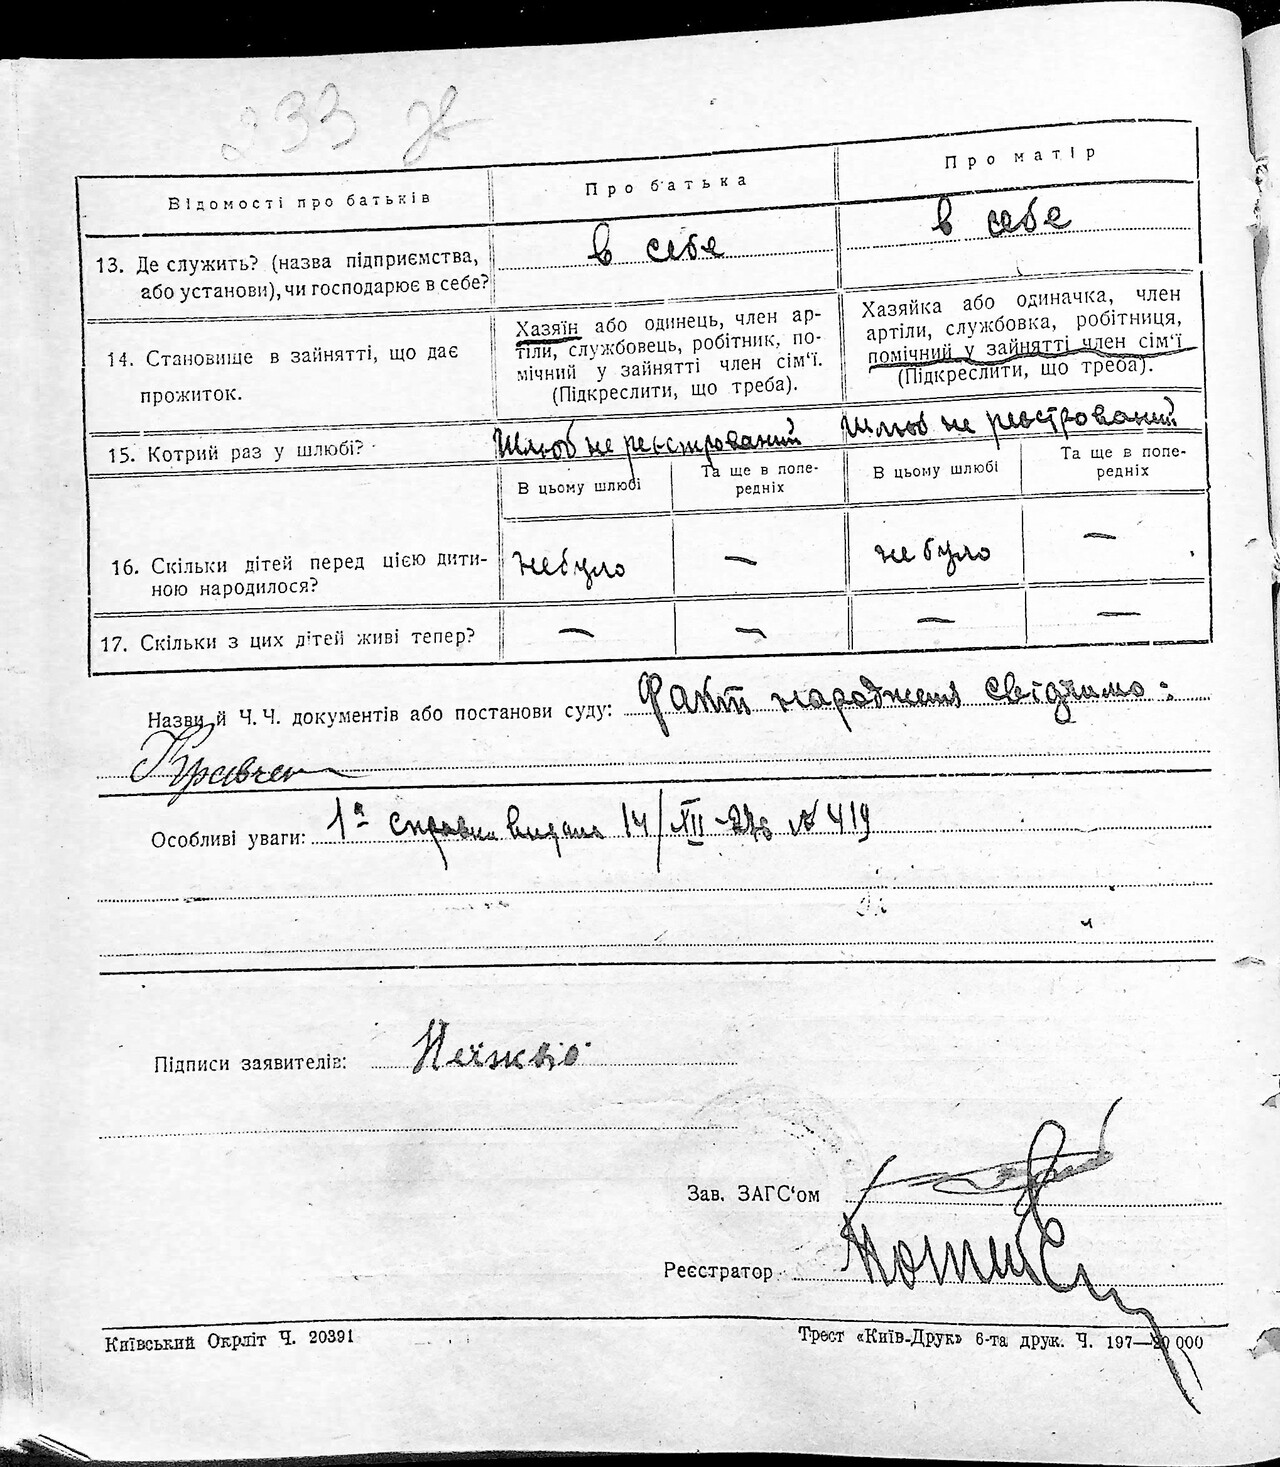 233
Відомості про батьків
Про батька
Про матір
13. Де служить? (назва підприємства,
або установи), чи господарює в себе?
в себе
в себе
14. Становище в зайнятті, що дає
прожиток.
Хазяїн або одинець, член ар-
тіли, службовець, робітник, по-
мічний у зайнятті член сім‘ї.
(Підкреслити, що треба).
Хазяйка або одиначка, член
артіли, службовка, робітниця,
помічний у зайнятті член сім‘ї
(Підкреслити, що треба).
15. Котрий раз у шлюбі?
Шлюб не реєстрований
Шлюб не реєстрований
В цьому шлюбі
Та ще в попе-
редніх
В цьому шлюбі
Та ще в попе-
редніх
16. Скільки дітей перед цією дити-
ною народилося?
не було
—
не було
—
17. Скільки з цих дітей живі тепер?
—
—
—
—
Назви й Ч. Ч. документів або постанови суду: Факт народження свідчимо:
Кравчен
Особливі уваги: 1а справка видана 14/XII-27р № 419
Підписи заявителів:
Зав. ЗАГС‘ом
Реєстратор
Київський Окрліт Ч. 20391
Трест «Київ-Друк» 6-та друк. Ч. 197—20 000